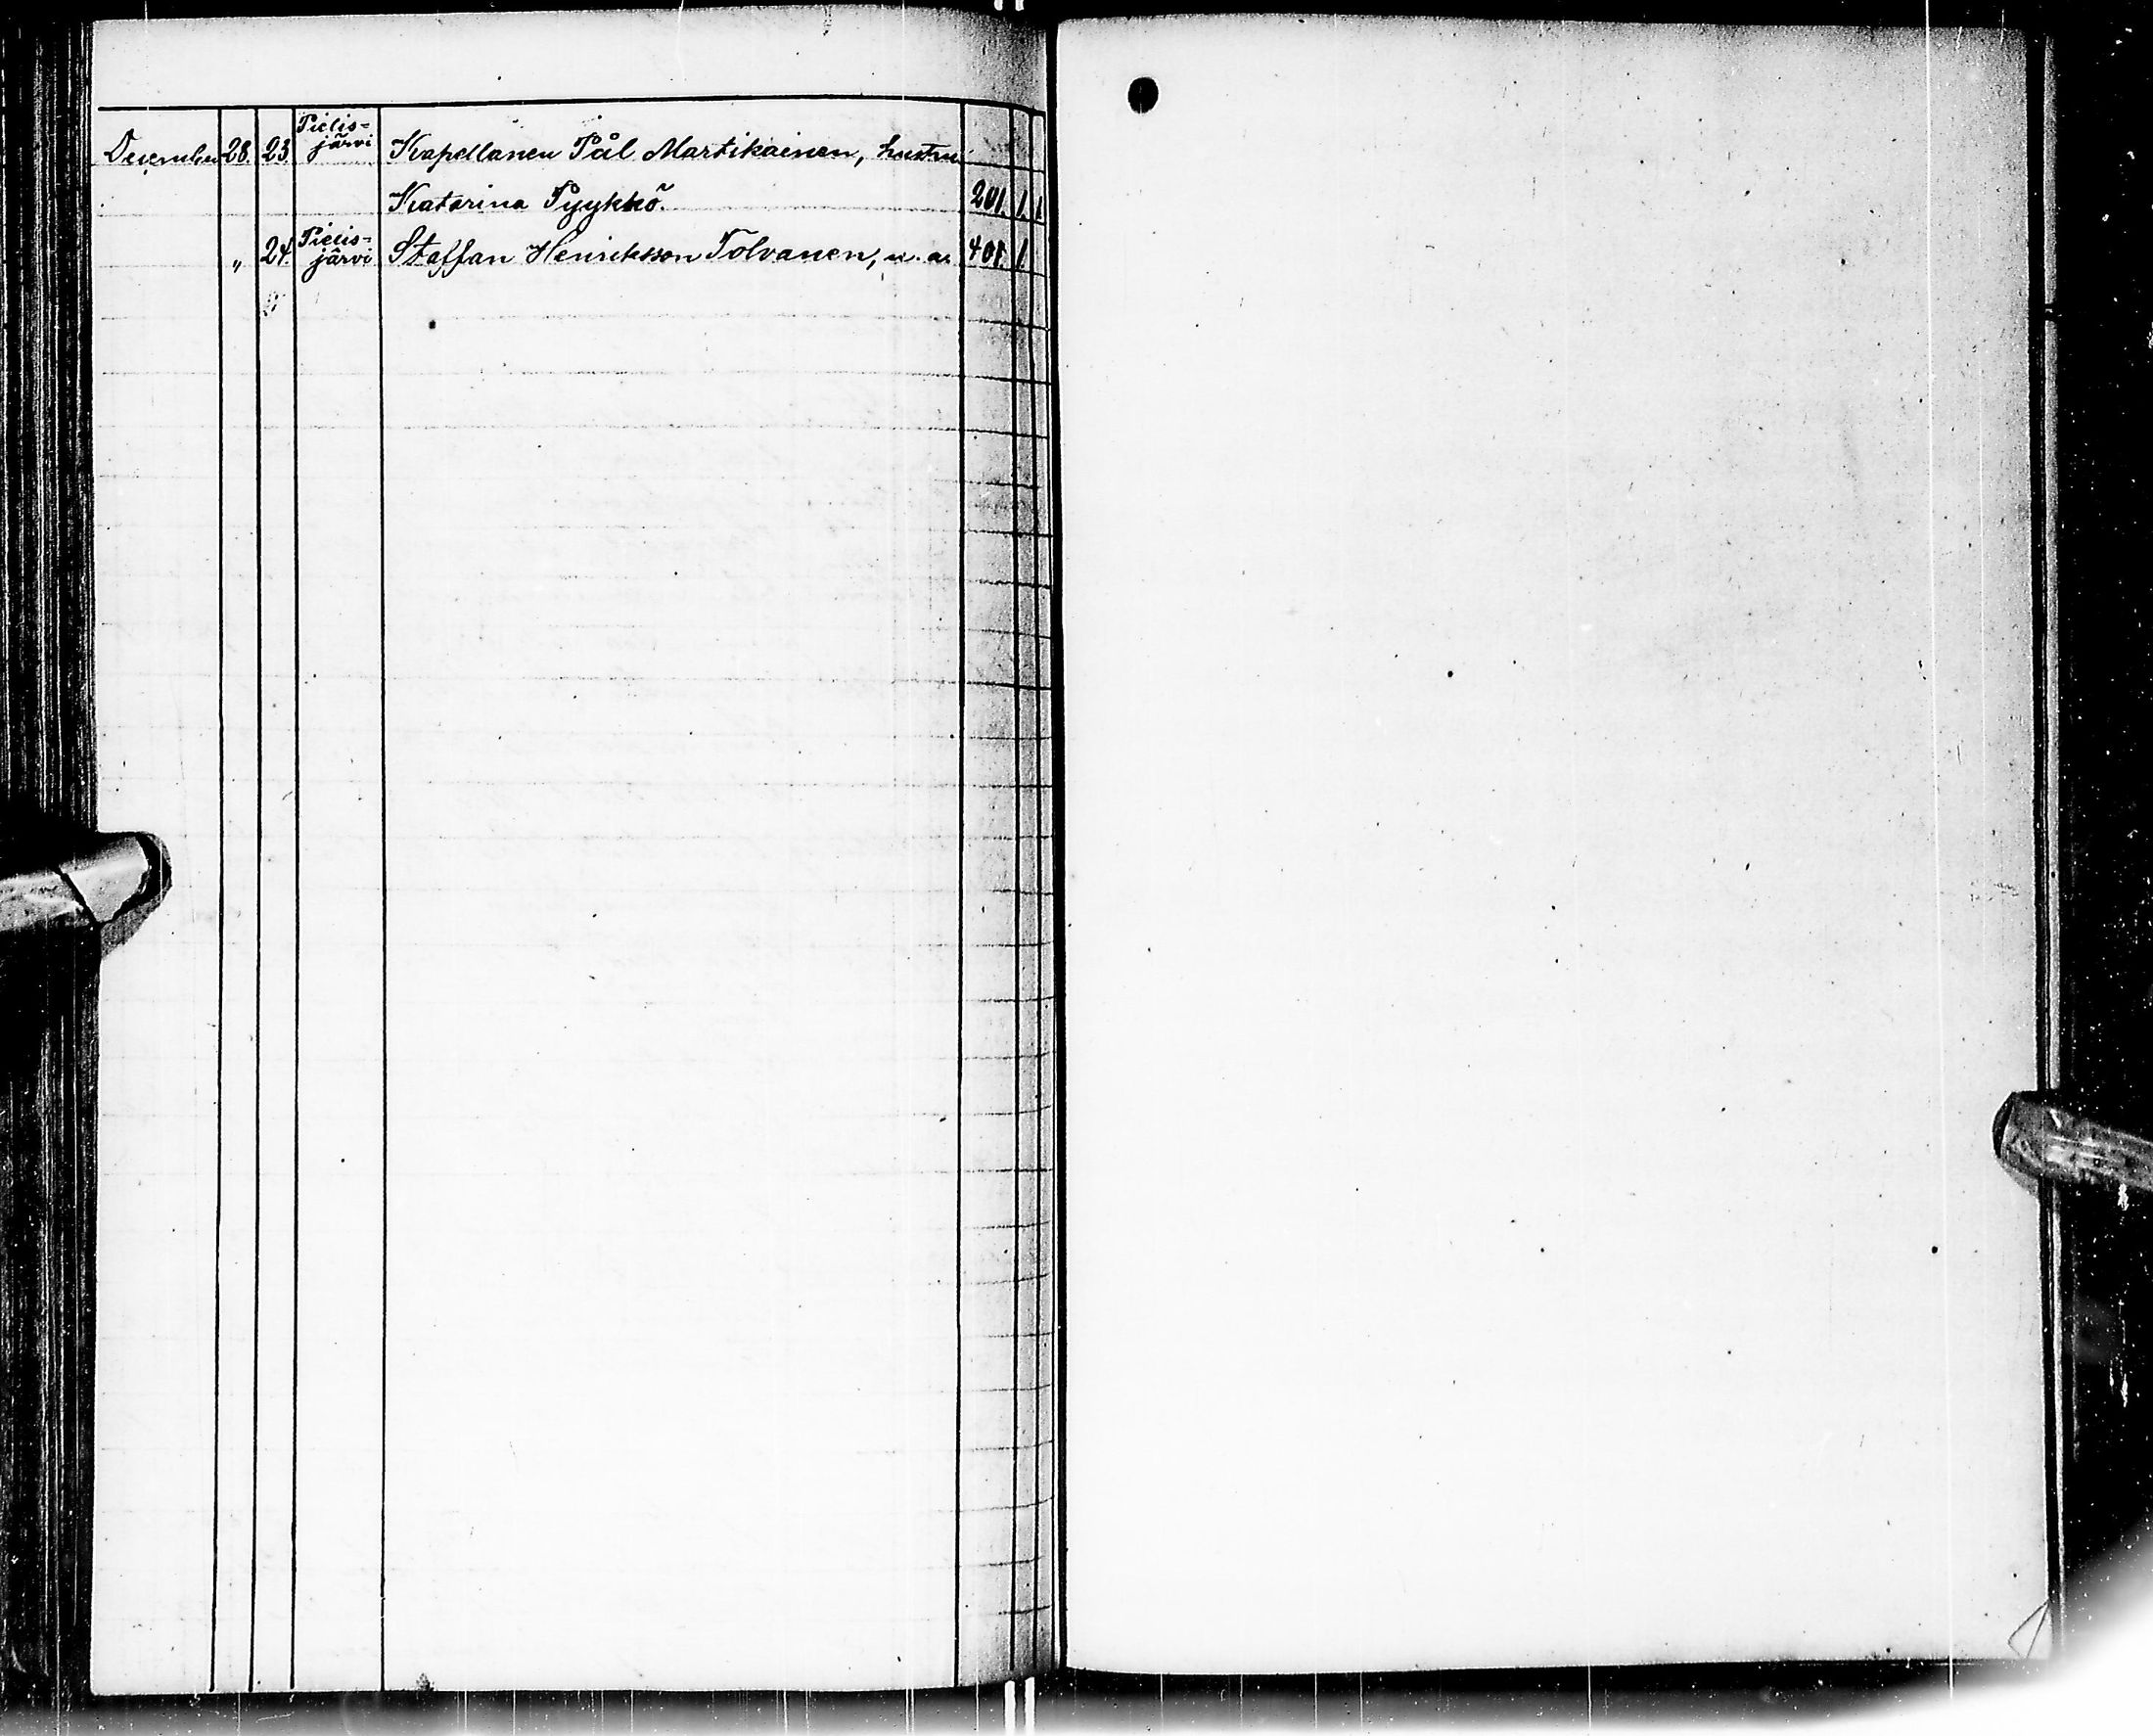 December 28. 23. Pielis-
järvi Kapellanen Pål Martikainen, hustru
Katarina Pyykkö. 201. 1. 1.
„ 24. Pielis-
järvi Staffan Henriksson Tolvanen, u. a. 401. 1.